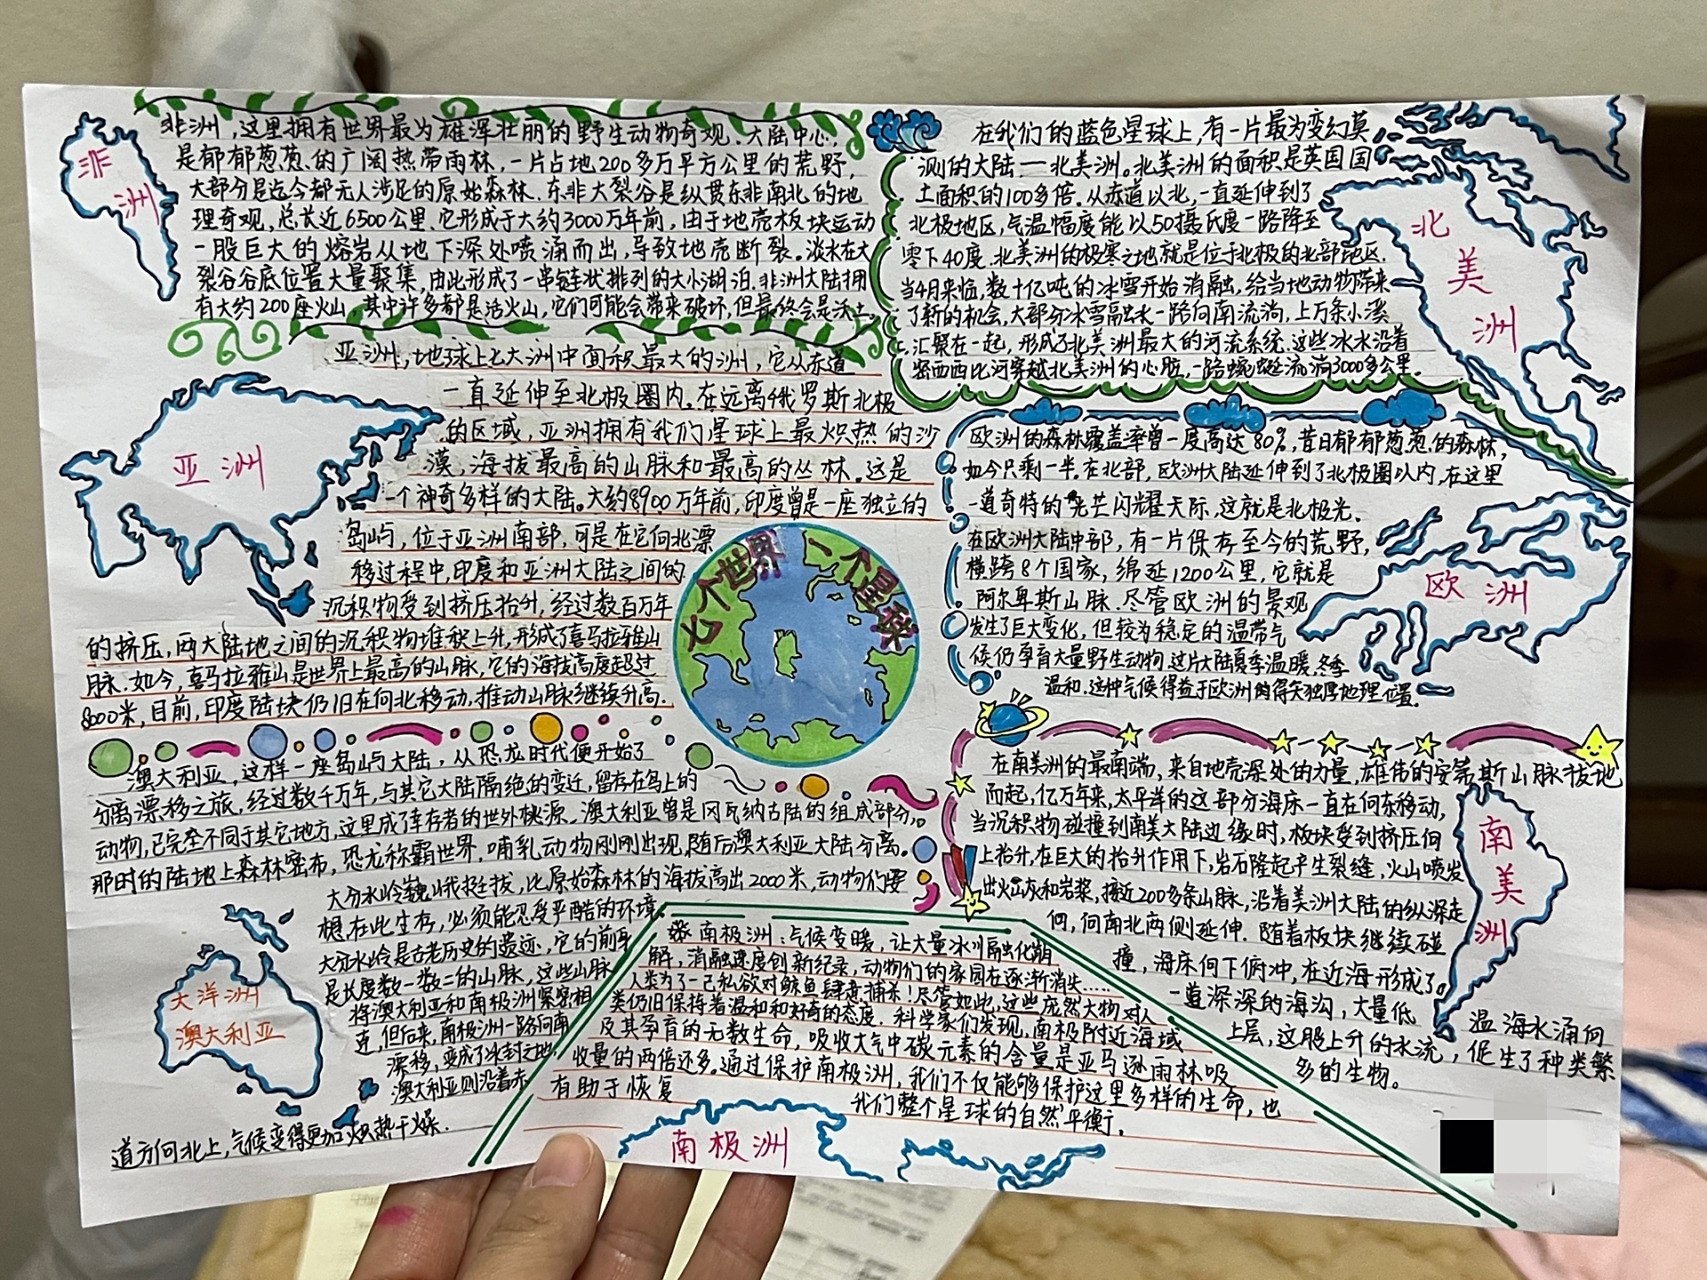 非洲
非洲，这里拥有世界最为雄浑壮丽的野生动物奇观、大陆中心，
是郁郁葱葱的广阔热带雨林，一片占地200多万平方公里的荒野，
大部分是迄今都无人涉足的原始森林．东非大裂谷是纵贯东非南北的地
理奇观，总长近6500公里．它形成于大约3000万年前，由于地壳板块运动
一股巨大的熔岩从地下深处喷涌而出，导致地壳断裂。淡水在大
裂谷谷底位置大量聚集，由此形成了一串链状排列的大小湖泊．非洲大陆拥
有大约200座火山，其中许多都是活火山，它们可能会带来破坏，但最终会是沃土。
亚洲
亚洲，地球上七大洲中面积最大的洲，它从赤道
一直延伸至北极圈内。在远离俄罗斯北极
的区域，亚洲拥有我们星球上最炽热的沙
漠，海拔最高的山脉和最高的丛林。这是
一个神奇多样的大陆。大约8900万年前，印度曾是一座独立的
岛屿，位于亚洲南部，可是在它向北漂
移过程中，印度和亚洲大陆之间的
沉积物受到挤压抬升，经过数百万年
的挤压，两大陆地之间的沉积物堆积上升，形成了喜马拉雅山
脉．如今，喜马拉雅山是世界上最高的山脉，它的海拔高度超过
8000米，目前，印度陆块仍旧在向北移动，推动山脉继续升高．
七个世界 一个星球
澳大利亚，这样一座岛屿大陆，从恐龙时代便开始了
分离漂移之旅，经过数千万年，与其它大陆隔绝的变迁，留存在岛上的
动物，已完全不同于其它地方，这里成了幸存者的世外桃源．澳大利亚曾是冈瓦纳古陆的组成部分，
那时的陆地上森林密布，恐龙称霸世界，哺乳动物刚刚出现，随后澳大利亚大陆分离。
大分水岭巍峨挺拔，比原始森林的海拔高出2000米，动物们要
想在此生存，必须能忍受严酷的环境
大分水岭是古老历史的遗迹，它的前身
是长度数一数二的山脉，这些山脉
将澳大利亚和南极洲紧密相
连，但后来，南极洲一路向南
漂移，变成了冰封之地，
澳大利亚则沿着赤
道方向北上，气候变得更加炽热干燥．
大洋洲
澳大利亚
在我们的蓝色星球上，有一片最为变幻莫
测的大陆——北美洲。北美洲的面积是英国国
土面积的100多倍．从赤道以北，一直延伸到了
北极地区，气温幅度能以50摄氏度一路降至
零下40度．北美洲的极寒之地就是位于北极的北部地区．
当4月来临，数十亿吨的冰雪开始消融，给当地动物带来
了新的机会，大部分冰雪融水一路向南流淌，上万条小溪
汇聚在一起，形成了北美洲最大的河流系统．这些冰水沿着
密西西比河穿越北美洲的心脏，一路蜿蜒流淌3000多公里．
北美洲
欧洲的森林覆盖率曾一度高达80%，昔日郁郁葱葱的森林，
如今只剩一半．在北部，欧洲大陆延伸到了北极圈以内，在这里
一道奇特的光芒闪耀天际，这就是北极光．
在欧洲大陆中部，有一片保存至今的荒野，
横跨8个国家，绵延1200公里，它就是
阿尔卑斯山脉．尽管欧洲的景观
发生了巨大变化，但较为稳定的温带气
候仍孕育大量野生动物．这片大陆夏季温暖，冬季
温和，这种气候得益于欧洲得天独厚地理位置。
欧洲
在南美洲的最南端，来自地壳深处的力量，雄伟的安第斯山脉拔地
而起，亿万年来，太平洋的这部分海床一直在向东移动，
当沉积物碰撞到南美大陆边缘时，板块受到挤压向
上抬升，在巨大的抬升作用下，岩石隆起产生裂缝，火山喷发
出火山灰和岩浆，接近200多条山脉，沿着美洲大陆的纵深走
向，向南北两侧延伸．随着板块继续碰
撞，海床向下俯冲，在近海形成了
一道深深的海沟，大量低
温海水涌向
上层，这股上升的水流，促生了种类繁
多的生物。
南美洲
南极洲：气候变暖，让大量冰川融化崩
解，消融速度创新纪录，动物们的家园在逐渐消失……
人类为了一己私欲对鲸鱼肆意捕杀！尽管如此，这些庞然大物对人
类仍旧保持着温和和好奇的态度．科学家们发现，南极附近海域
及其孕育的无数生命，吸收大气中碳元素的含量是亚马逊雨林吸
收量的两倍还多．通过保护南极洲，我们不仅能够保护这里多样的生命，也
有助于恢复 我们整个星球的自然平衡．
南极洲